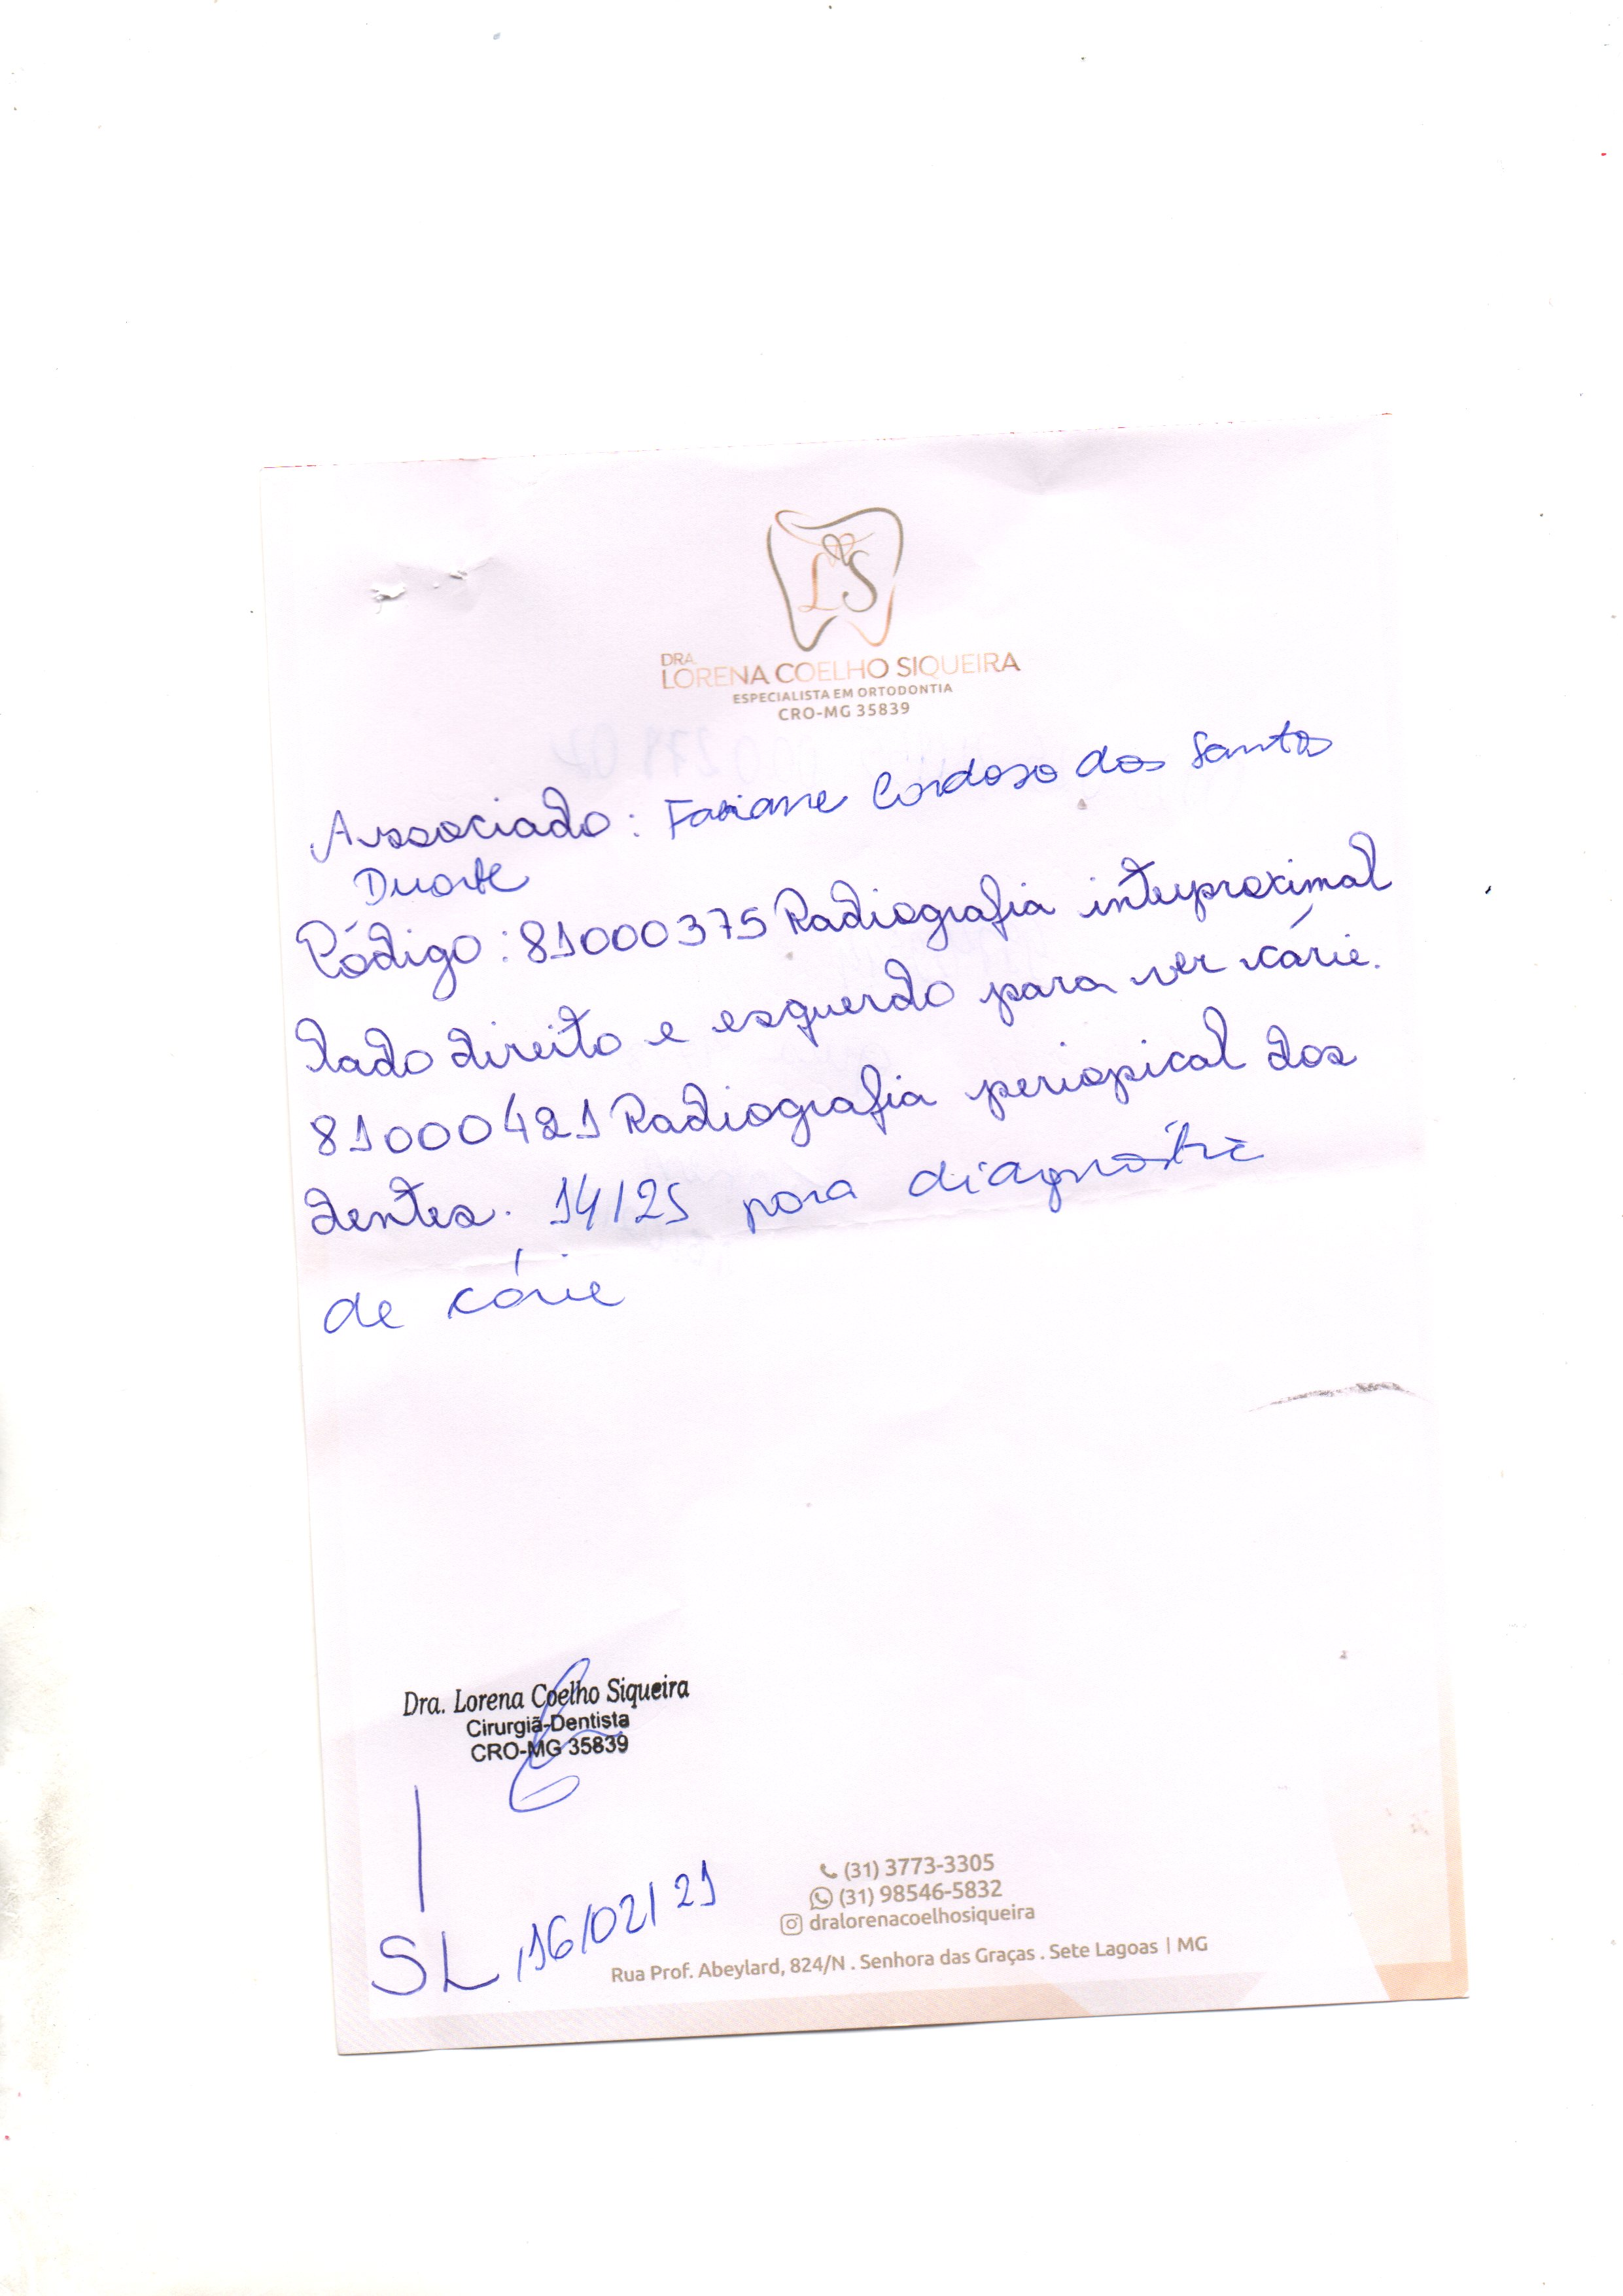 LS
DRA.
LORENA COELHO SIQUEIRA
ESPECIALISTA EM ORTODONTIA
CRO-MG 35839
Associado: Fabiane Cardoso dos Santos
Duarte
Código: 81000375 Radiografia interproximal
lado direito e esquerdo para ver cárie.
81000421 Radiografia periapical dos
dentes. 14/25 para diagnóstic
de cárie
Dra. Lorena Coelho Siqueira
Cirurgiã-Dentista
CRO-MG 35839
SL, 16/02/21
(31) 3773-3305
(31) 98546-5832
dralorenacoelhosiqueira
Rua Prof. Abeylard, 824/N . Senhora das Graças . Sete Lagoas | MG